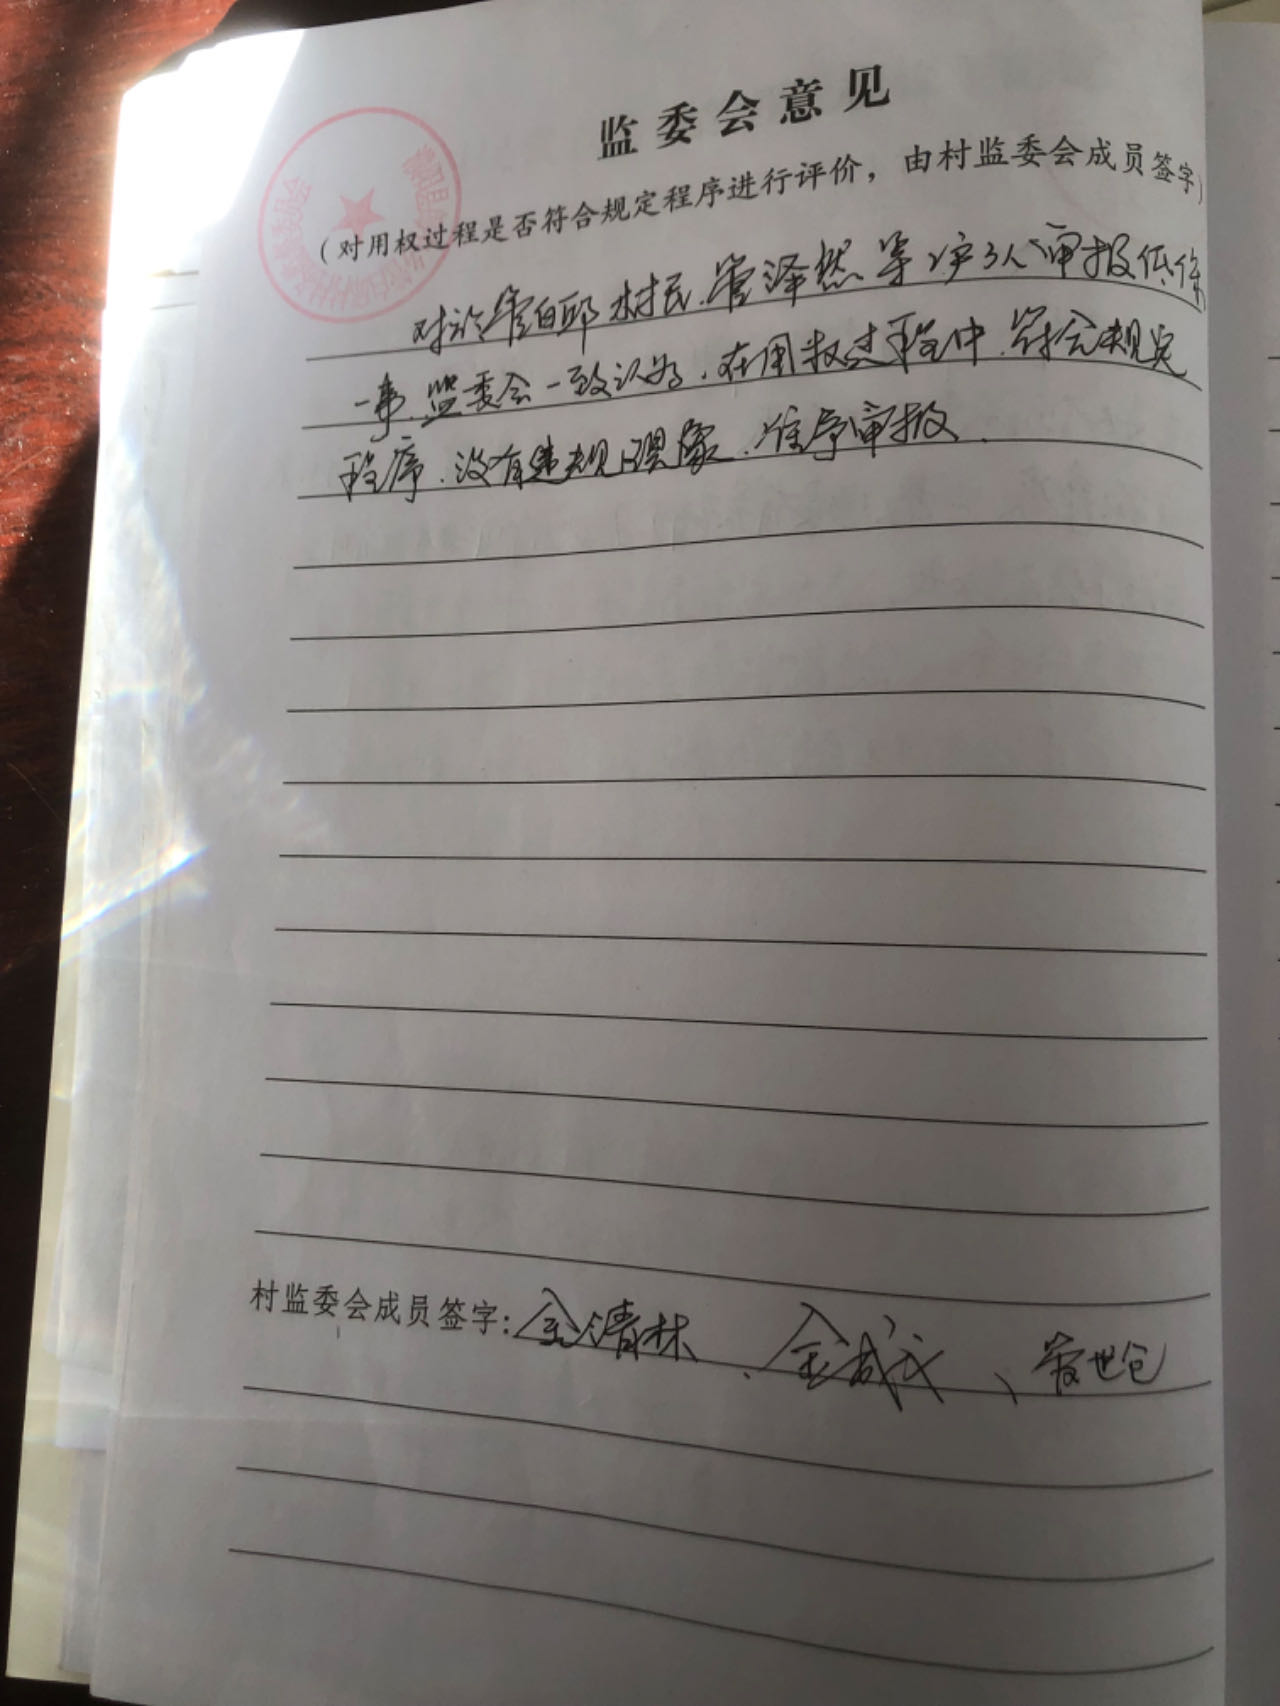 监委会意见
（对用权过程是否符合规定程序进行评价，由村监委会成员签字）
对于管白邱村民管泽然等2户3人审报低保
一事，监委会一致认为，在用权过程中，符合规定
程序，没有违规现象，准予审报。
村监委会成员签字：金清林、金成文、管世仓